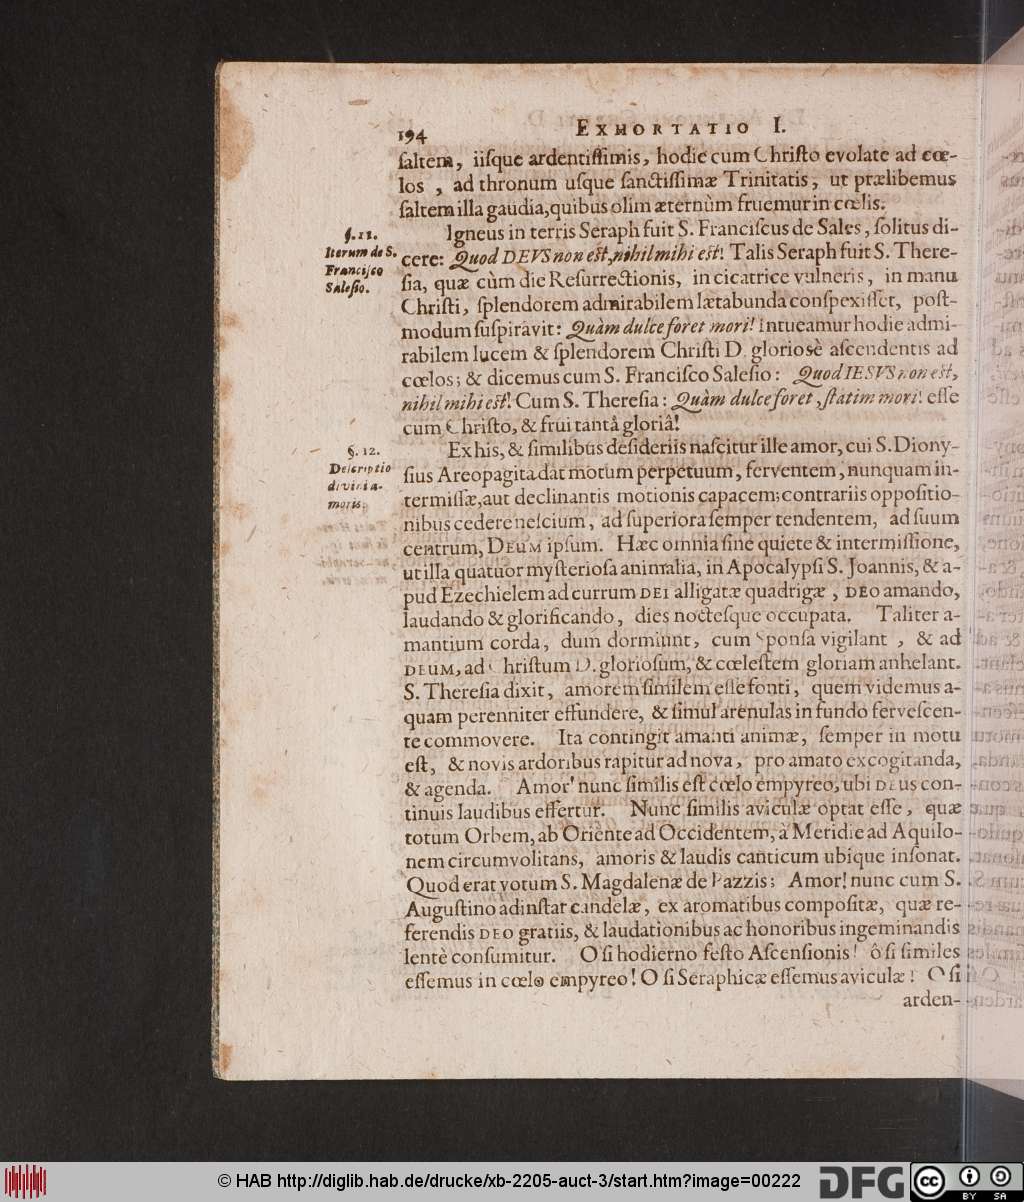 194 EXHORTATIO I.
ſaltem, iiſque ardentiſſimis, hodie cum Chriſto evolate ad cœ-
los , ad thronum uſque ſanctiſſimæ Trinitatis, ut prælibemus
ſaltem illa gaudia, quibus olim æternùm fruemur in cœlis.
§. 11.
Iterum de S.
Franciſco
Saleſio.
Igneus in terris Seraph fuit S. Franciſcus de Sales, ſolitus di-
cere: Quod DEVS non eſt, nihil mihi eſt! Talis Seraph fuit S. There-
ſia, quæ cùm die Reſurrectionis, in cicatrice vulneris, in manu
Chriſti, ſplendorem admirabilem lætabunda conſpexiſſet, poſt-
modum ſuſpiravit: Quàm dulce foret mori! Intueamur hodie admi-
rabilem lucem & ſplendorem Chriſti D. glorioſè aſcendentis ad
cœlos; & dicemus cum S. Franciſco Saleſio: Quod IESVS non eſt,
nihil mihi eſt! Cum S. Thereſia: Quàm dulce foret, ſtatim mori! eſſe
cum Chriſto, & frui tantâ gloriâ!
§. 12.
Deſcriptio
divini a-
moris.
Ex his, & ſimilibus deſideriis naſcitur ille amor, cui S. Diony-
ſius Areopagita dat motum perpetuum, ferventem, nunquam in-
termiſſæ, aut declinantis motionis capacem; contrariis oppoſitio-
nibus cedere neſcium, ad ſuperiora ſemper tendentem, ad ſuum
centrum, DEUM ipſum. Hæc omnia ſine quiete & intermiſſione,
ut illa quatuor myſterioſa animalia, in Apocalypſi S. Joannis, & a-
pud Ezechielem ad currum DEI alligatæ quadrigæ , DEO amando,
laudando & glorificando, dies nocteſque occupata. Taliter a-
mantium corda, dum dormiunt, cum Sponſa vigilant , & ad
DEUM, ad Chriſtum D. glorioſum, & cœleſtem gloriam anhelant.
S. Thereſia dixit, amorem ſimilem eſſe fonti, quem videmus a-
quam perenniter effundere, & ſimul arenulas in fundo ferveſcen-
te commovere. Ita contingit amanti animæ, ſemper in motu
eſt, & novis ardoribus rapitur ad nova, pro amato excogitanda,
& agenda. Amor nunc ſimilis eſt cœlo empyreo, ubi DEUS con-
tinuis laudibus effertur. Nunc ſimilis aviculæ optat eſſe, quæ
totum Orbem, ab Oriente ad Occidentem, à Meridie ad Aquilo-
nem circumvolitans, amoris & laudis canticum ubique inſonat.
Quod erat votum S. Magdalenæ de Pazzis; Amor! nunc cum S.
Auguſtino ad inſtar candelæ, ex aromatibus compoſitæ, quæ re-
ferendis DEO gratiis, & laudationibus ac honoribus ingeminandis
lentè conſumitur. O ſi hodierno feſto Aſcenſionis! ô ſi ſimiles
eſſemus in cœlo empyreo! O ſi Seraphicæ eſſemus aviculæ! O ſi
arden-
© HAB http://diglib.hab.de/drucke/xb-2205-auct-3/start.htm?image=00222
DFG
cc BY SA